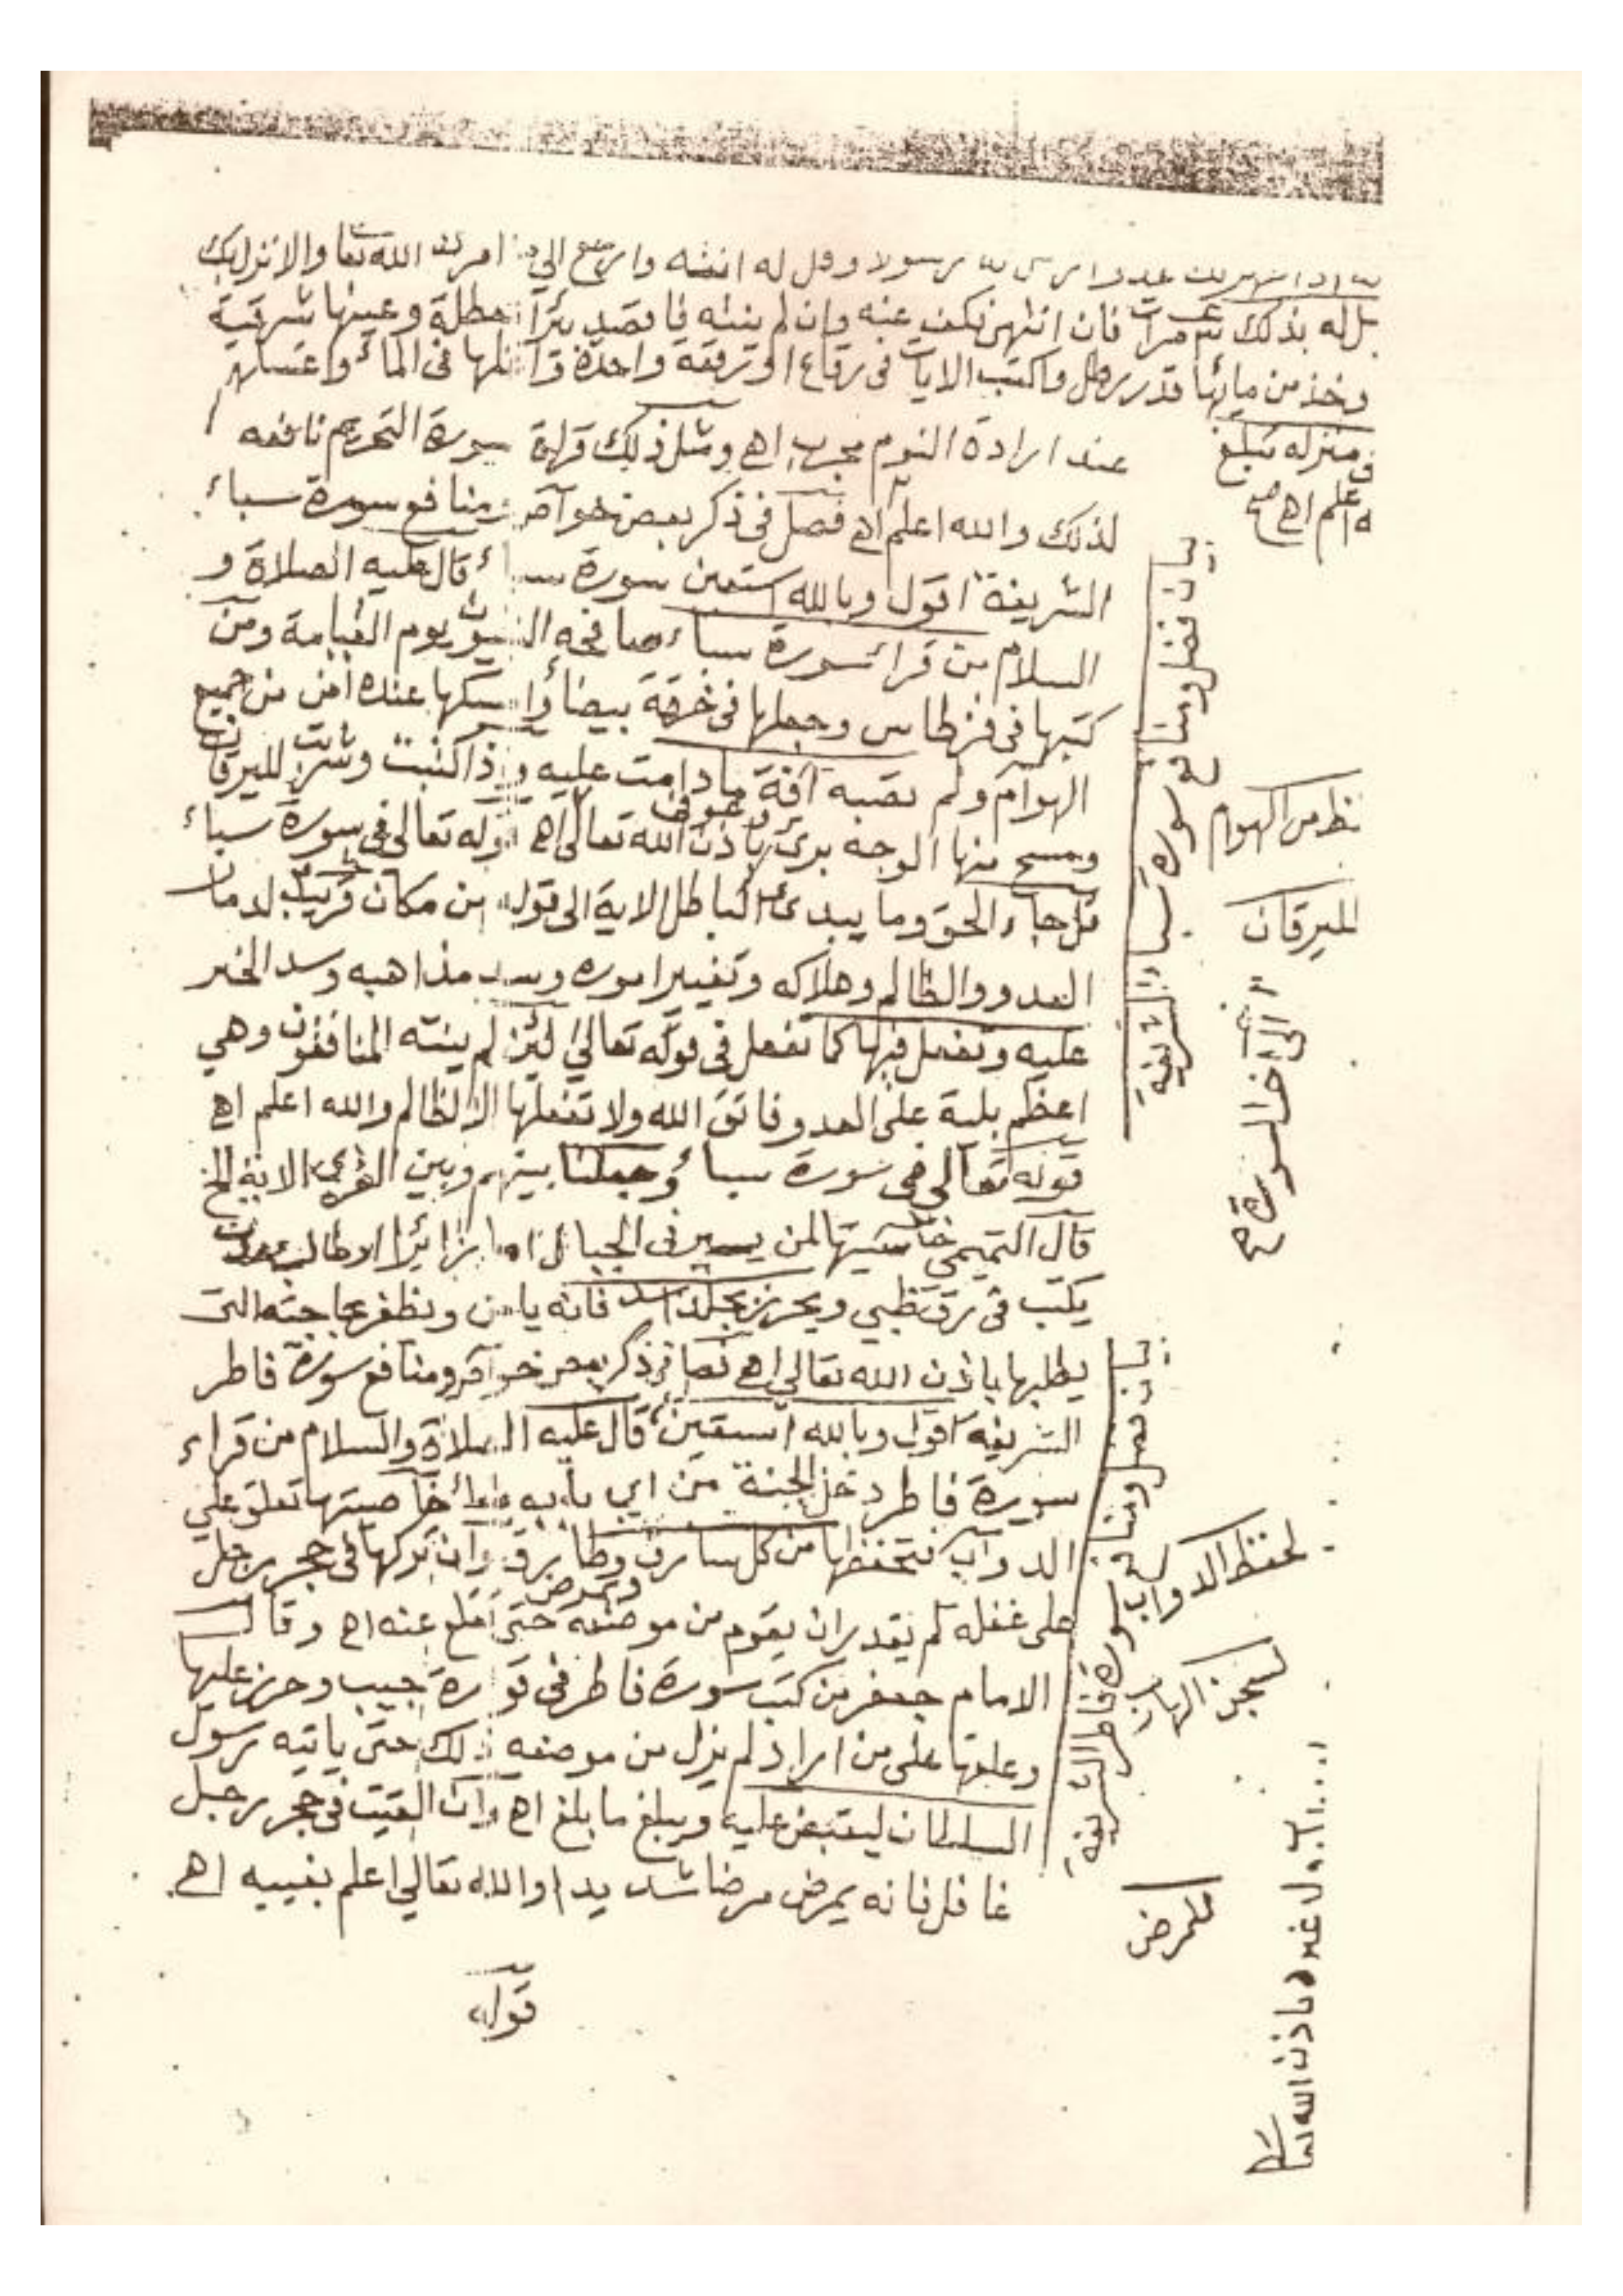 رسولا وقل له انته وارجع الي امر الله تعا والا نزل بك
بذلك مرات فان انتهى نكف عنه وان لم ينته فاقصد بئرا معطلة وعينها شرقية
وخذ من مائها قدر رطل واكتب الايات في رقاع او رقعة واحدة في الماء واغسلهم
عند ارادة النوم مجرب اهـ ومثل ذلك قراءة سورة التحريم نافعه
لذلك والله اعلم اهـ فصل في ذكر بعض خواص ومنافع سورة سباء
الشريفة اقول وبالله استعين سورة سباء قال عليه الصلاة و
السلام من قراء سورة سباء صافحه النبيون يوم القيامة ومن
كتبها في قرطاس وجعلها في خرقة بيضاء وامسكها عنده امن من جميع
الهوام ولم تصبه آفة ما دامت عليه واذا كتبت وشرب لليرقان
ومسح منها الوجه برئ وعوفى باذن الله تعالى اهـ قوله تعالى في سورة سباء
قل جاء الحق وما يبدئ الباطل الاية الى قوله من مكان قريب لدمار
العدو والظالم وهلاكه وتغيير اموره وسد مذاهبه وسد الخير
عليه وتفعل فيها كما تفعل في قوله تعالى لئن لم ينته المنافقون وهي
اعظم بلية على العدو فاتق الله ولا تفعلها الا لظالم والله اعلم اهـ
قوله تعالى في سورة سباء وجعلنا بينهم وبين القرى الاية الخ
قال التميمي خاصيتها لمن يسير في الجبال اما زائرا او طالب
يكتب في رق ظبي ويحرز بجلد اسد فانه يامن ويظفر بحاجته التى
يطلبها باذن الله تعالى اهـ فصل في ذكر بعض خواص ومنافع سورة فاطر
الشريفه اقول وبالله استعين قال عليه الصلاة والسلام من قراء
سورة فاطر دخل الجنة من اي باب واما خاصيتها تعلق على
الدواب فتحفظها من كل سارق وطارق وان تركها في حجر رجل
على غفله لم يقدر ان يقوم من موضعه حتى اقلع عنه اهـ وقال
الامام جعفر من كتب سورة فاطر في قوارة جيب وحرز عليها
وعلقها على من اراد لم يزل من موضعه ذلك حتى ياتيه رسول
السلطان ليقبض عليه ويبلغ ما بلغ اهـ وان القيت في حجر رجل
غافل فانه يمرض مرضا شديدا والله تعالى اعلم بغيبه اهـ
قوله
في منزله تبلغ
اعلم اهـ
بيان فضل ومنافع سورة سباء الشريفة
الهوام
لليرقان
الى اخر السورة
بيان فضل ومنافع سورة فاطر الشريفة
لحفظ الدواب
للمرض
باذن الله تعالى